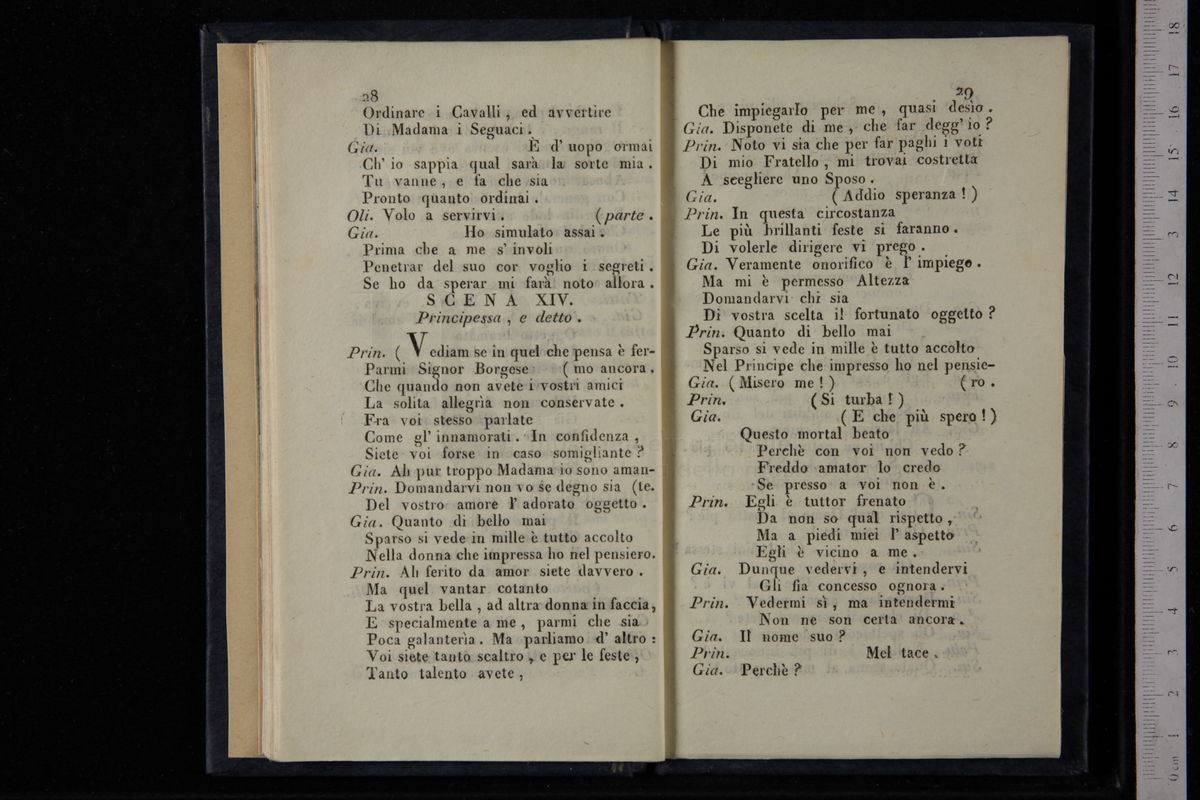 28
Ordinare i Cavalli , ed avvertire
Di Madama i Seguaci .
Gia. E d' uopo ormai
Ch' io sappia qual sarà la sorte mia .
Tu vanne , e fa che sia
Pronto quanto ordinai .
Oli. Volo a servirvi . (parte .
Gia. Ho simulato assai .
Prima che a me s' involi
Penetrar del suo cor voglio i segreti .
Se ho da sperar mi farà noto allora .
SCENA XIV.
Principessa , e detto .
Prin. ( Vediam se in quel che pensa è fer-
Parmi Signor Borgese ( mo ancora .
Che quando non avete i vostri amici
La solita allegrìa non conservate .
Fra voi stesso parlate
Come gl' innamorati . In confidenza ,
Siete voi forse in caso somigliante ?
Gia. Ah pur troppo Madama io sono aman-
Prin. Domandarvi non vo se degno sia (te.
Del vostro amore l' adorato oggetto .
Gia. Quanto di bello mai
Sparso si vede in mille è tutto accolto
Nella donna che impressa ho nel pensiero.
Prin. Ah ferito da amor siete davvero .
Ma quel vantar cotanto
La vostra bella , ad altra donna in faccia,
E specialmente a me , parmi che sia
Poca galanterìa . Ma parliamo d' altro :
Voi siete tanto scaltro , e per le feste ,
Tanto talento avete ,
29
Che impiegarlo per me , quasi desìo .
Gia. Disponete di me , che far degg' io ?
Prin. Noto vi sia che per far paghi i voti
Di mio Fratello , mi trovai costretta
A scegliere uno Sposo .
Gia. ( Addio speranza ! )
Prin. In questa circostanza
Le più brillanti feste si faranno .
Di volerle dirigere vi prego .
Gia. Veramente onorifico è l' impiego .
Ma mi è permesso Altezza
Domandarvi chi sia
Di vostra scelta il fortunato oggetto ?
Prin. Quanto di bello mai
Sparso si vede in mille è tutto accolto
Nel Principe che impresso ho nel pensie-
Gia. ( Misero me ! ) ( ro .
Prin. ( Si turba ! )
Gia. ( E che più spero ! )
Questo mortal beato
Perchè con voi non vedo ?
Freddo amator lo credo
Se presso a voi non è .
Prin. Egli è tuttor frenato
Da non so qual rispetto ,
Ma a piedi miei l' aspetto
Egli è vicino a me .
Gia. Dunque vedervi , e intendervi
Gli fia concesso ognora .
Prin. Vedermi sì , ma intendermi
Non ne son certa ancora .
Gia. Il nome suo ?
Prin. Mel tace .
Gia. Perchè ?
0 cm 1 2 3 4 5 6 7 8 9 10 11 12 13 14 15 16 17 18